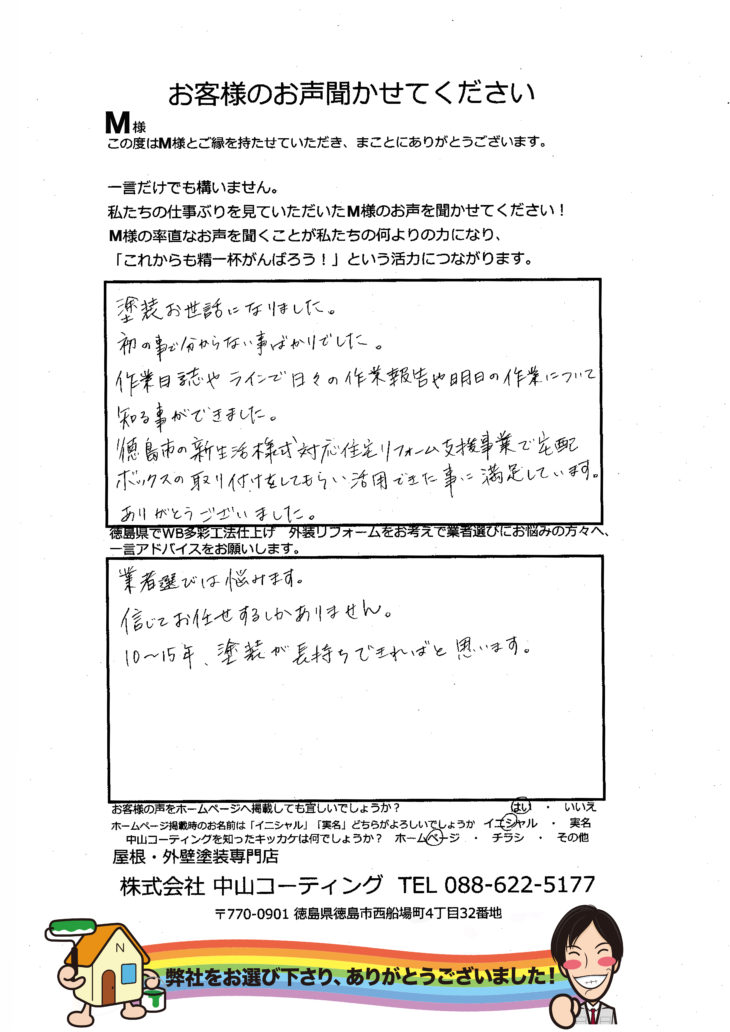 お客様のお声聞かせてください
M様
この度はM様とご縁を持たせていただき、まことにありがとうございます。
一言だけでも構いません。
私たちの仕事ぶりを見ていただいたM様のお声を聞かせてください！
M様の率直なお声を聞くことが私たちの何よりの力になり、
「これからも精一杯がんばろう！」という活力につながります。
塗装お世話になりました。
初の事で分からない事ばかりでした。
作業日誌やラインで日々の作業報告や明日の作業について
知る事ができました。
徳島市の新生活様式対応住宅リフォーム支援事業で宅配
ボックスの取り付けをしてもらい活用できた事に満足しています。
ありがとうございました。
徳島県でWB多彩工法仕上げ　外装リフォームをお考えで業者選びにお悩みの方々へ、
一言アドバイスをお願いします。
業者選びは悩みます。
信じてお任せするしかありません。
10〜15年、塗装が長持ちできればと思います。
お客様の声をホームページへ掲載しても宜しいでしょうか？　はい　・　いいえ
ホームページ掲載時のお名前は「イニシャル」「実名」どちらがよろしいでしょうか　イニシャル　・　実名
中山コーティングを知ったキッカケは何でしょうか？　ホームページ　・　チラシ　・　その他
屋根・外壁塗装専門店
株式会社 中山コーティング　TEL 088-622-5177
〒770-0901 徳島県徳島市西船場町4丁目32番地
N
弊社をお選び下さり、ありがとうございました！